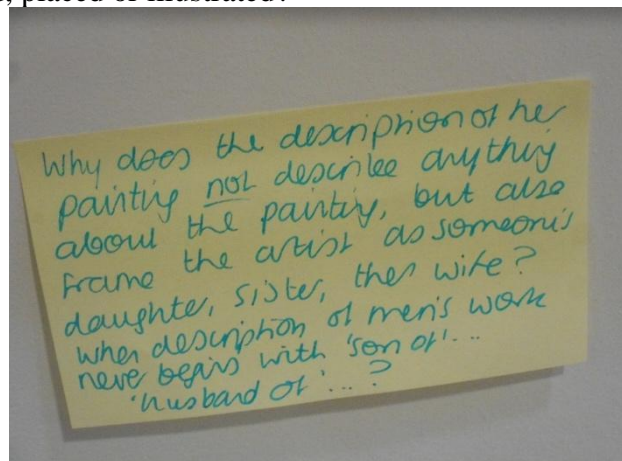 , placed or illustrated?
Why does the description of her
painting not describe anything
about the painting, but also
frame the artist as someone's
daughter, sister, then wife?
when description of men's work
never begins with 'son of'...
'husband of'...?